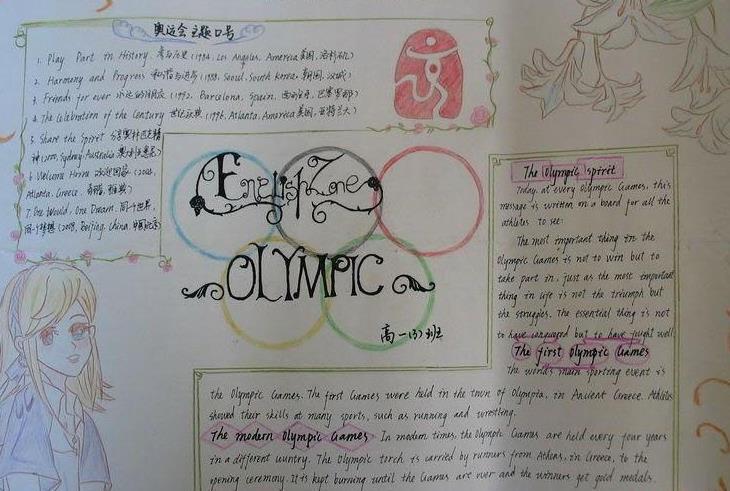 奥运会主题口号
1. Play Part in History. 参与历史 (1984, Los Angeles, America 美国, 洛杉矶)
2. Harmony and Progress 和谐与进步 (1988, Seoul, South Korea, 韩国, 汉城)
3. Friends for ever 永远的朋友 (1992, Barcelona, Spain, 西班牙, 巴塞罗那)
4. The Celebration of the Century 世纪庆典 (1996, Atlanta, America 美国, 亚特兰大)
5. Share the Spiret 分享奥林匹克精
神 (2000, Sydney, Australia 澳大利亚悉尼)
6. Welcome Home 欢迎回家 (2004,
Atlanta, Greece. 希腊 雅典)
7. One World, One Dream, 同一个世界,
同一个梦想 (2008, Beijing, China, 中国北京)
English Zone
OLYMPIC
高一(3)班
The Olympic spirit
Today, at every Olympic Games, this
message is written on a board for all the
athletes to see:
The most important thing in the
Olympic Games is not to win but to
take part in, just as the most important
thing in life is not the triumph but
the struggles. The essential thing is not
to have conquered but to have fought well.
The first Olympic Games
The world's main sporting event is
the Olympic Games. The first Games were held in the town of Olympia, in Ancient Greece. Athletes
showed their skills at many sports, such as running and wrestling.
The modern Olympic Games In modern times, the Olympic Games are held every four years
in a different country. The Olympic torch is carried by runners from Athens, in Greece, to the
opening ceremony. It is kept burning until the Games are over and the winners get gold medals.